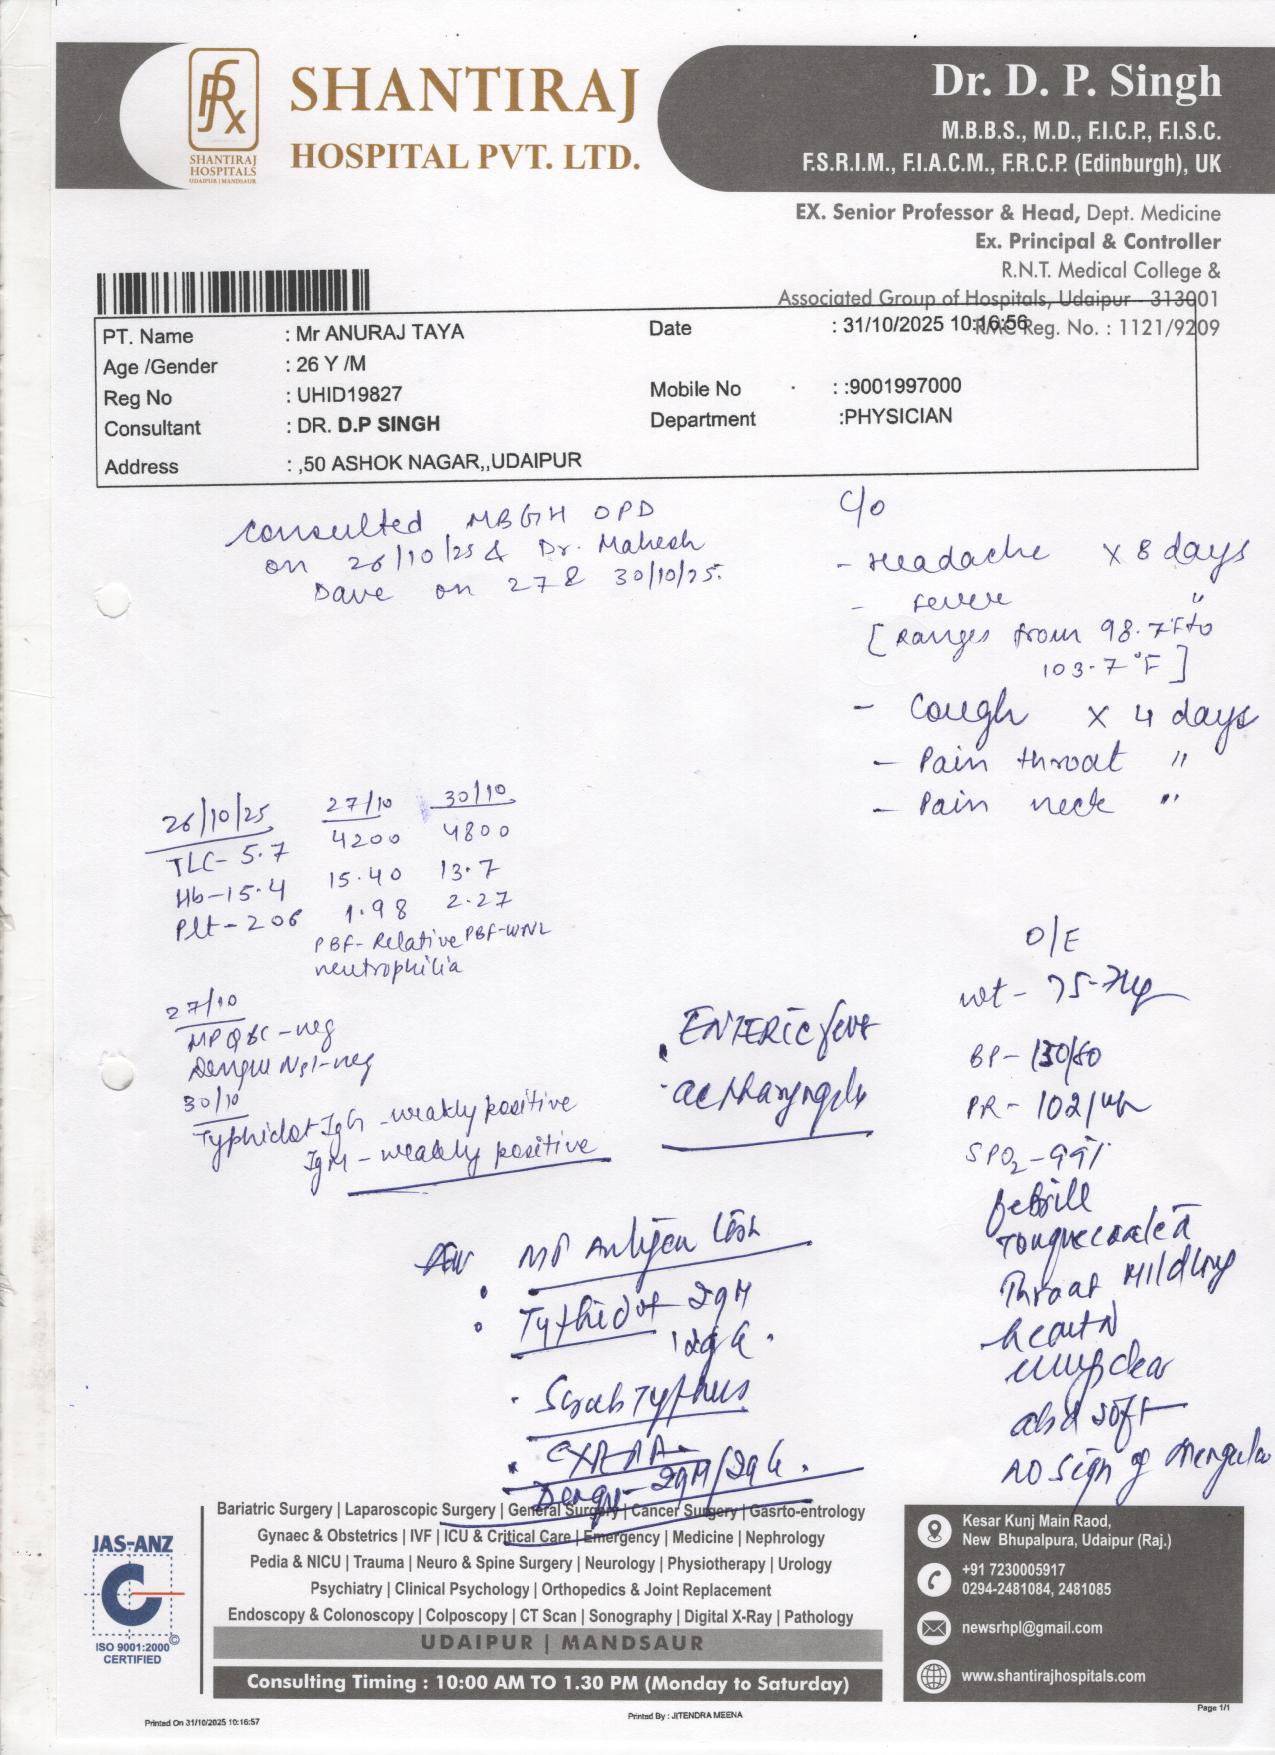 SHANTIRAJ
HOSPITALS
UDAIPUR | MANDSAUR
SHANTIRAJ
HOSPITAL PVT. LTD.
Dr. D. P. Singh
M.B.B.S., M.D., F.I.C.P., F.I.S.C.
F.S.R.I.M., F.I.A.C.M., F.R.C.P. (Edinburgh), UK
EX. Senior Professor & Head, Dept. Medicine
Ex. Principal & Controller
R.N.T. Medical College &
Associated Group of Hospitals, Udaipur - 313001
RMC Reg. No. : 1121/9209
PT. Name : Mr ANURAJ TAYA Date : 31/10/2025 10:16:56
Age /Gender : 26 Y /M
Reg No : UHID19827 Mobile No : :9001997000
Consultant : DR. D.P SINGH Department :PHYSICIAN
Address : ,50 ASHOK NAGAR,,UDAIPUR
Consulted MBGH OPD
on 26/10/25 & Dr. Mahesh
Dave on 27 & 30/10/25.
C/o
- Headache x 8 days
- Fever "
[Ranges from 98.7°F to
103.7°F]
- Cough x 4 days
- Pain throat "
- Pain neck "
26/10/25 27/10 30/10
TLC- 5.7 4200 4800
Hb-15.4 15.40 13.7
Plt-206 1.98 2.27
PBF- Relative PBF-WNL
neutrophilia
27/10
MP QBC -neg
Dengue NS1-neg
30/10
Typhidot IgG -weakly positive
IgM - weakly positive
ENTERIC fever
O/E
wt -
BP-
PR- 102/
SPO2-99%
febrile
Tongue coated
Throat Mildly
heart N
lungs clear
abd soft
NO sign of
MP Antigen
Typhidot IgM
IgG.
Scrub Typhus
CXR PA
Dengue- IgM/IgG.
Bariatric Surgery | Laparoscopic Surgery | General Surgery | Cancer Surgery | Gasrto-entrology
Gynaec & Obstetrics | IVF | ICU & Critical Care | Emergency | Medicine | Nephrology
Pedia & NICU | Trauma | Neuro & Spine Surgery | Neurology | Physiotherapy | Urology
Psychiatry | Clinical Psychology | Orthopedics & Joint Replacement
Endoscopy & Colonoscopy | Colposcopy | CT Scan | Sonography | Digital X-Ray | Pathology
UDAIPUR | MANDSAUR
Consulting Timing : 10:00 AM TO 1.30 PM (Monday to Saturday)
JAS-ANZ
C
ISO 9001:2000
CERTIFIED
Kesar Kunj Main Raod,
New Bhupalpura, Udaipur (Raj.)
+91 7230005917
0294-2481084, 2481085
newsrhpl@gmail.com
www.shantirajhospitals.com
Printed On 31/10/2025 10:16:57
Printed By : JITENDRA MEENA
Page 1/1